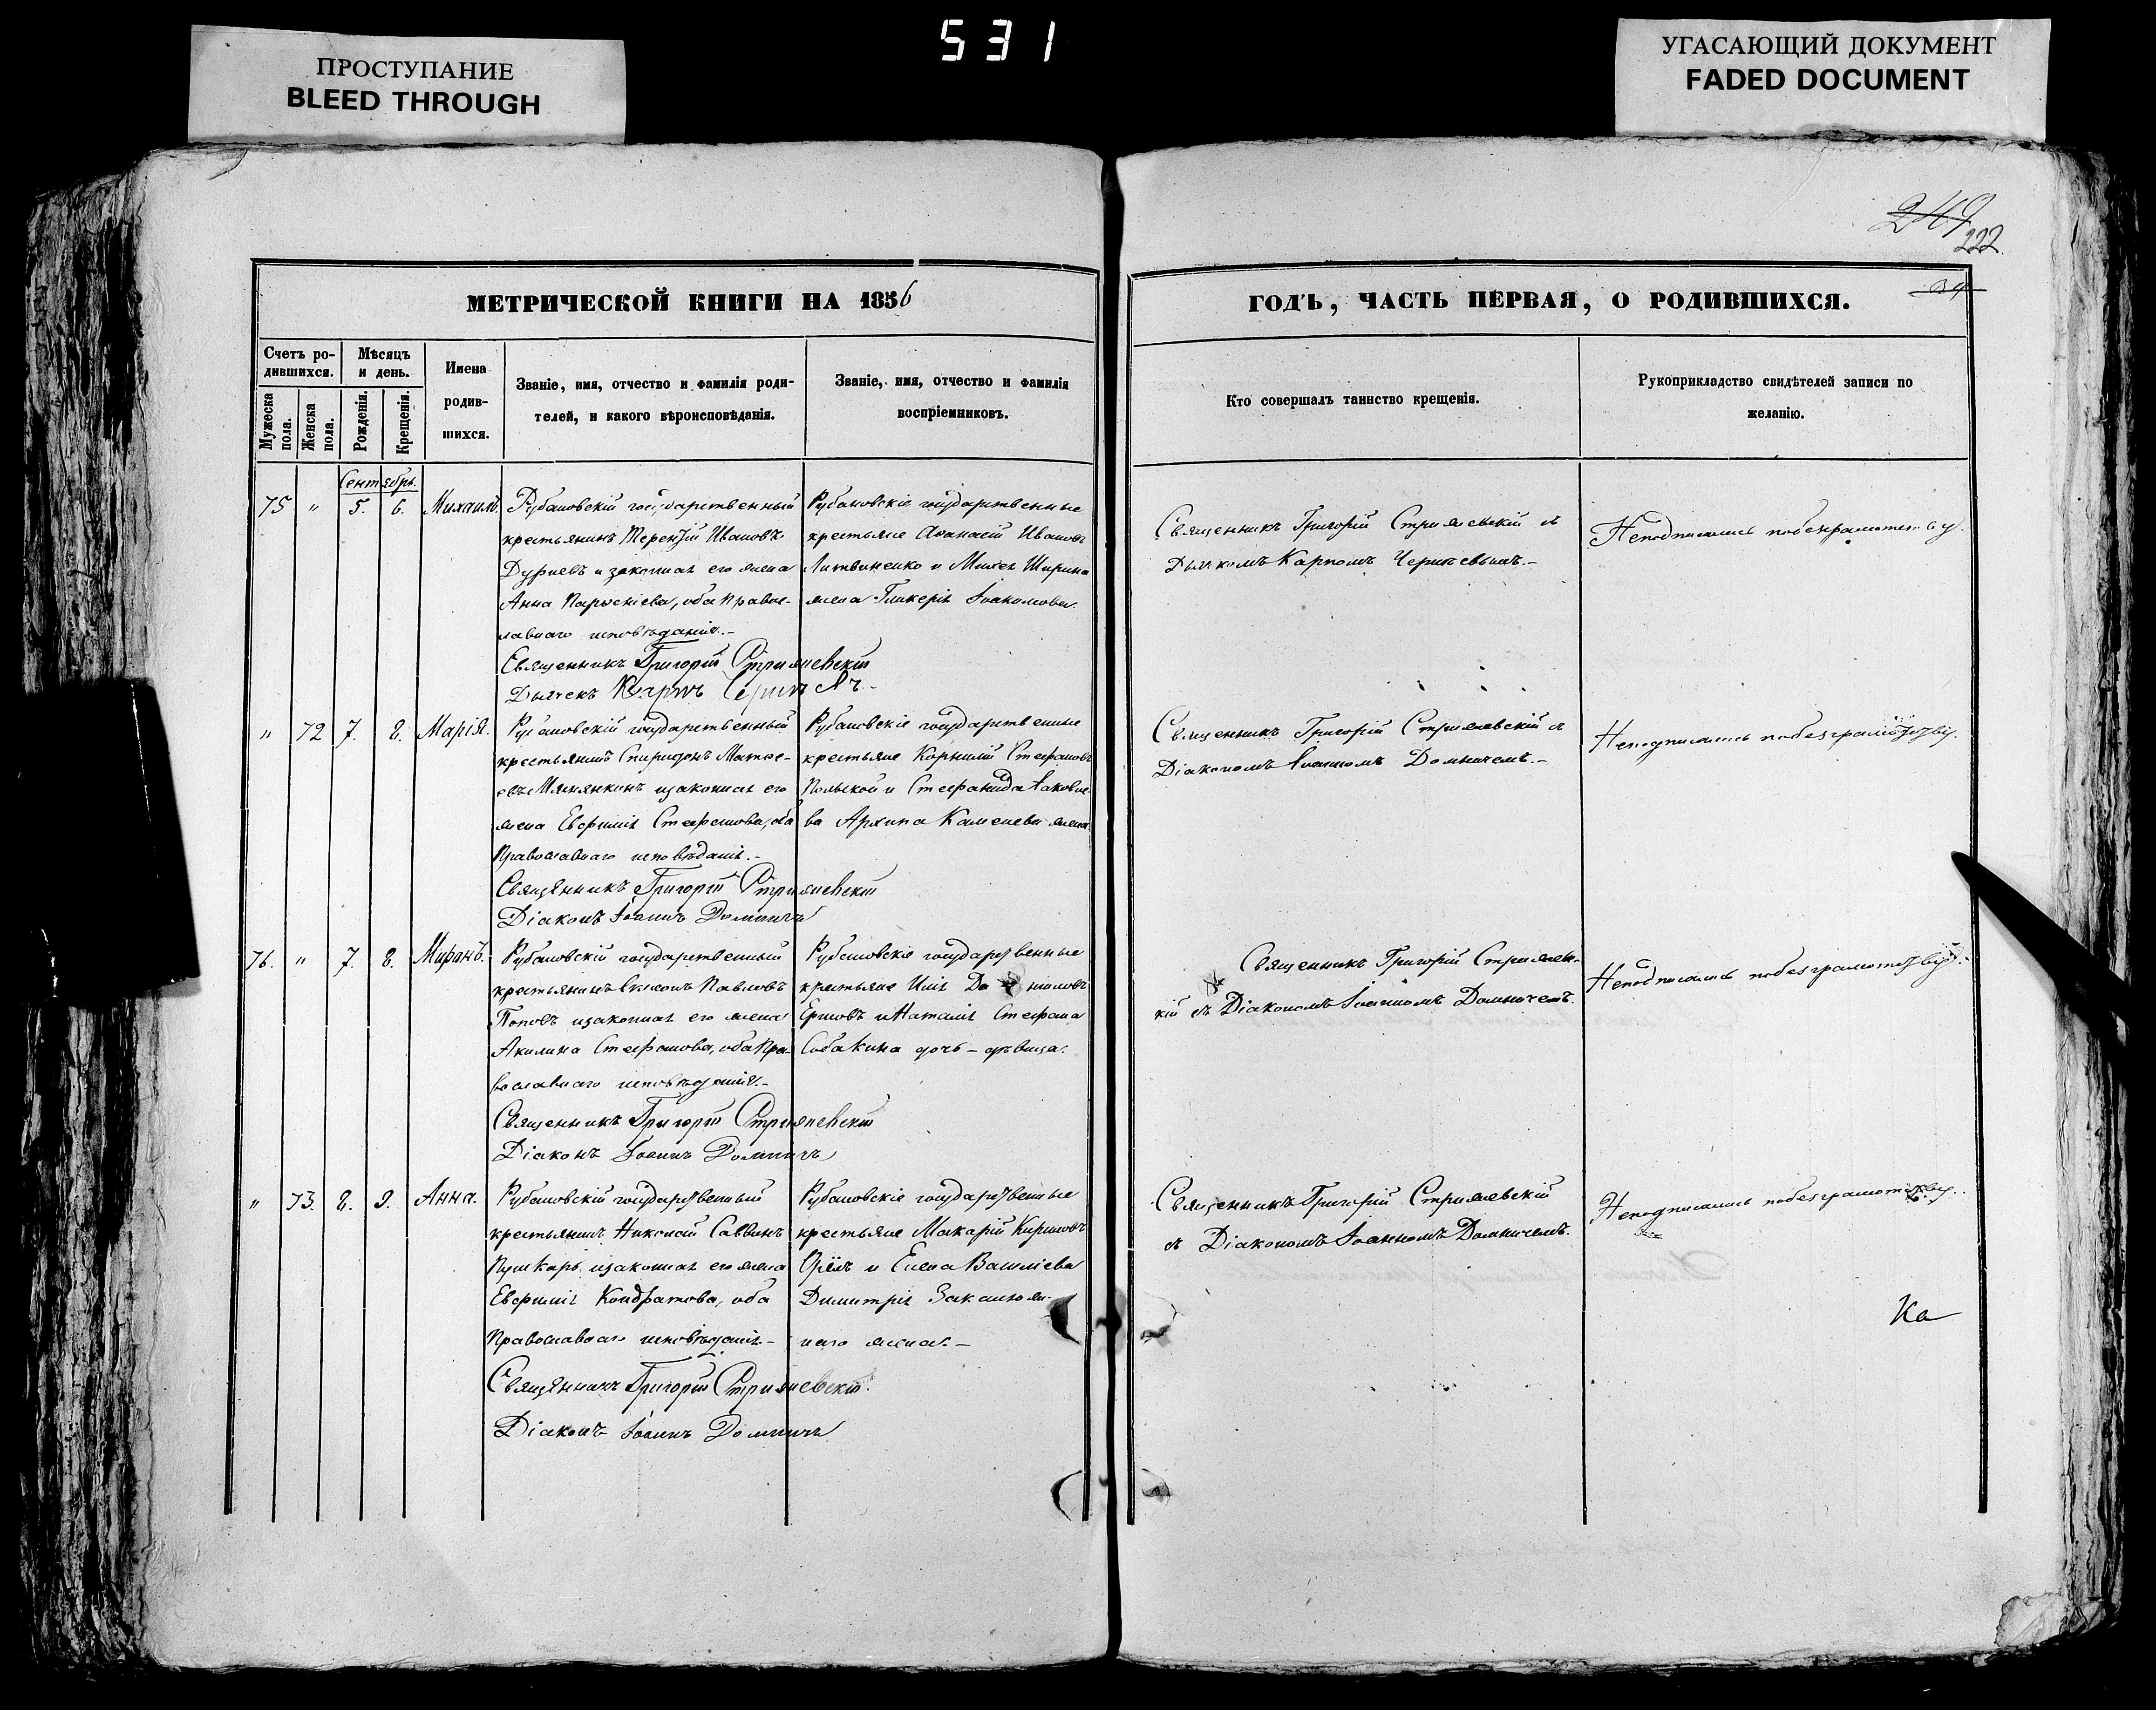 531
ПРОСТУПАНИЕ
BLEED THROUGH
УГАСАЮЩИЙ ДОКУМЕНТ
FADED DOCUMENT
249
222.
МЕТРИЧЕСКОЙ КНИГИ НА 1856
Счетъ ро-
дившихся.
Мѣсяцъ
и день.
Мужеска
пола.
Женска
пола.
Рожденія.
Крещенія.
Имена
родив-
шихся.
Званіе, имя, отчество и фамилія роди-
телей, и какого вѣроисповѣданія.
Званіе, имя, отчество и фамилія
воспріемниковъ.
Сентябрь.
75 " 5. 6. Михаилъ.
Рубановскій государственный
крестьянинъ Терентій Ивановъ
и законная его жена
Анна, оба правос-
лавнаго исповѣданія.-
Священникъ Григорій Стрижевскій
Дьячекъ Карпъ
Рубановскіе государственные
крестьяне Аѳанасій Ивановъ
Литвиненко и Ширина
жена Гликерія Іоакимова
" 72 7. 8. Марія.
Рубановскій государственный
крестьянинъ Спиридонъ Матѳе-
евъ и законная его
жена Евфимія Стефанова, оба
Православнаго исповѣданія.-
Священникъ Григорій Стрижевскій
Діаконъ Іоаннъ Домничъ
Рубановскіе государственные
крестьяне Корнилій Стефановъ
Польской и Стефанида Іаковле-
ва жена.
76. " 7. 8. Миранъ.
Рубановскій государственный
крестьянинъ Павловъ
Поповъ и законная его жена
Акилина Стефанова, оба Пра-
вославнаго исповѣданія.-
Священникъ Григорій Стрижевскій
Діаконъ Іоаннъ Домничъ
Рубановскіе государственные
крестьяне Илія Даниловъ
Ершовъ и Наталія Стефана
Собакина дочь - дѣвица.
" 73. 8. 9. Анна.
Рубановскій государственный
крестьянинъ Николай Саввинъ
Пушкарь и законная его жена
Евфимія Кондратова, оба
Православнаго исповѣданія.-
Священникъ Григорій Стрижевскій
Діаконъ Іоаннъ Домничъ
Рубановскіе государственные
крестьяне Макарій Кириловъ
и Елена Василіева
Димитрія
наго жена.-
ГОДЪ, ЧАСТЬ ПЕРВАЯ, О РОДИВШИХСЯ.
Кто совершалъ таинство крещенія.
Рукоприкладство свидѣтелей записи по
желанію.
Священникъ Григорій Стрижевскій съ
Дьячкомъ Карпомъ
Неподписались по безграмотству.
Священникъ Григорій Стрижевскій съ
Діакономъ Іоанномъ Домничемъ.-
Неподписались по безграмотству.
Священникъ Григорій Стрижев-
кій съ Діакономъ Іоанномъ Домничемъ.
Неподписались по безграмотству.
Священникъ Григорій Стрижевскій
съ Діакономъ Іоанномъ Домничемъ.
Неподписались по безграмотству.
Ка